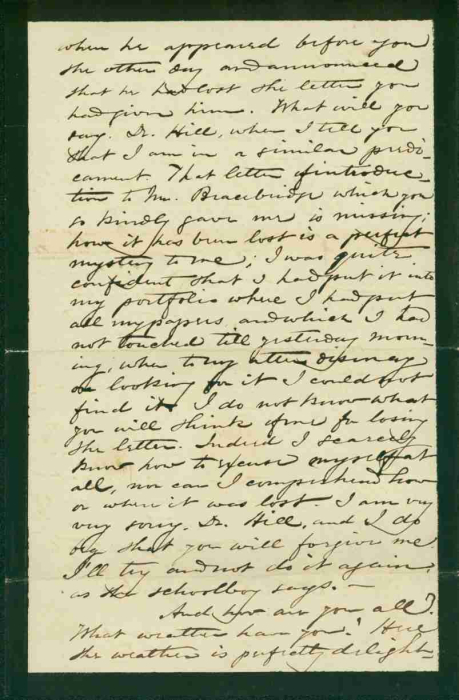 when he appeared before you
the other day and announced
that he had lost the letter you
had given him. What will you
say, Dr. Hill, when I tell you
that I am in a similar predi-
cament. That letter of introduc-
tion to Mr. Bracebridge which you
so kindly gave me is missing;
how it has been lost is a perfect
mystery to me; I was quite
confident that I had put it into
my portfolio where I had put
all my papers, and which I had
not touched till yesterday morn-
ing, when to my utter dismay
on looking for it I could not
find it. I do not know what
you will think of me for losing
the letter. Indeed I scarcely
know how to excuse myself at
all, nor can I comprehend how
or when it was lost. I am very
very sorry, Dr. Hill, and I do
beg that you will forgive me.
I'll try and not do it again,
as the schoolboy says. —
And how are you all?
What weather have you? Here
the weather is perfectly delight-